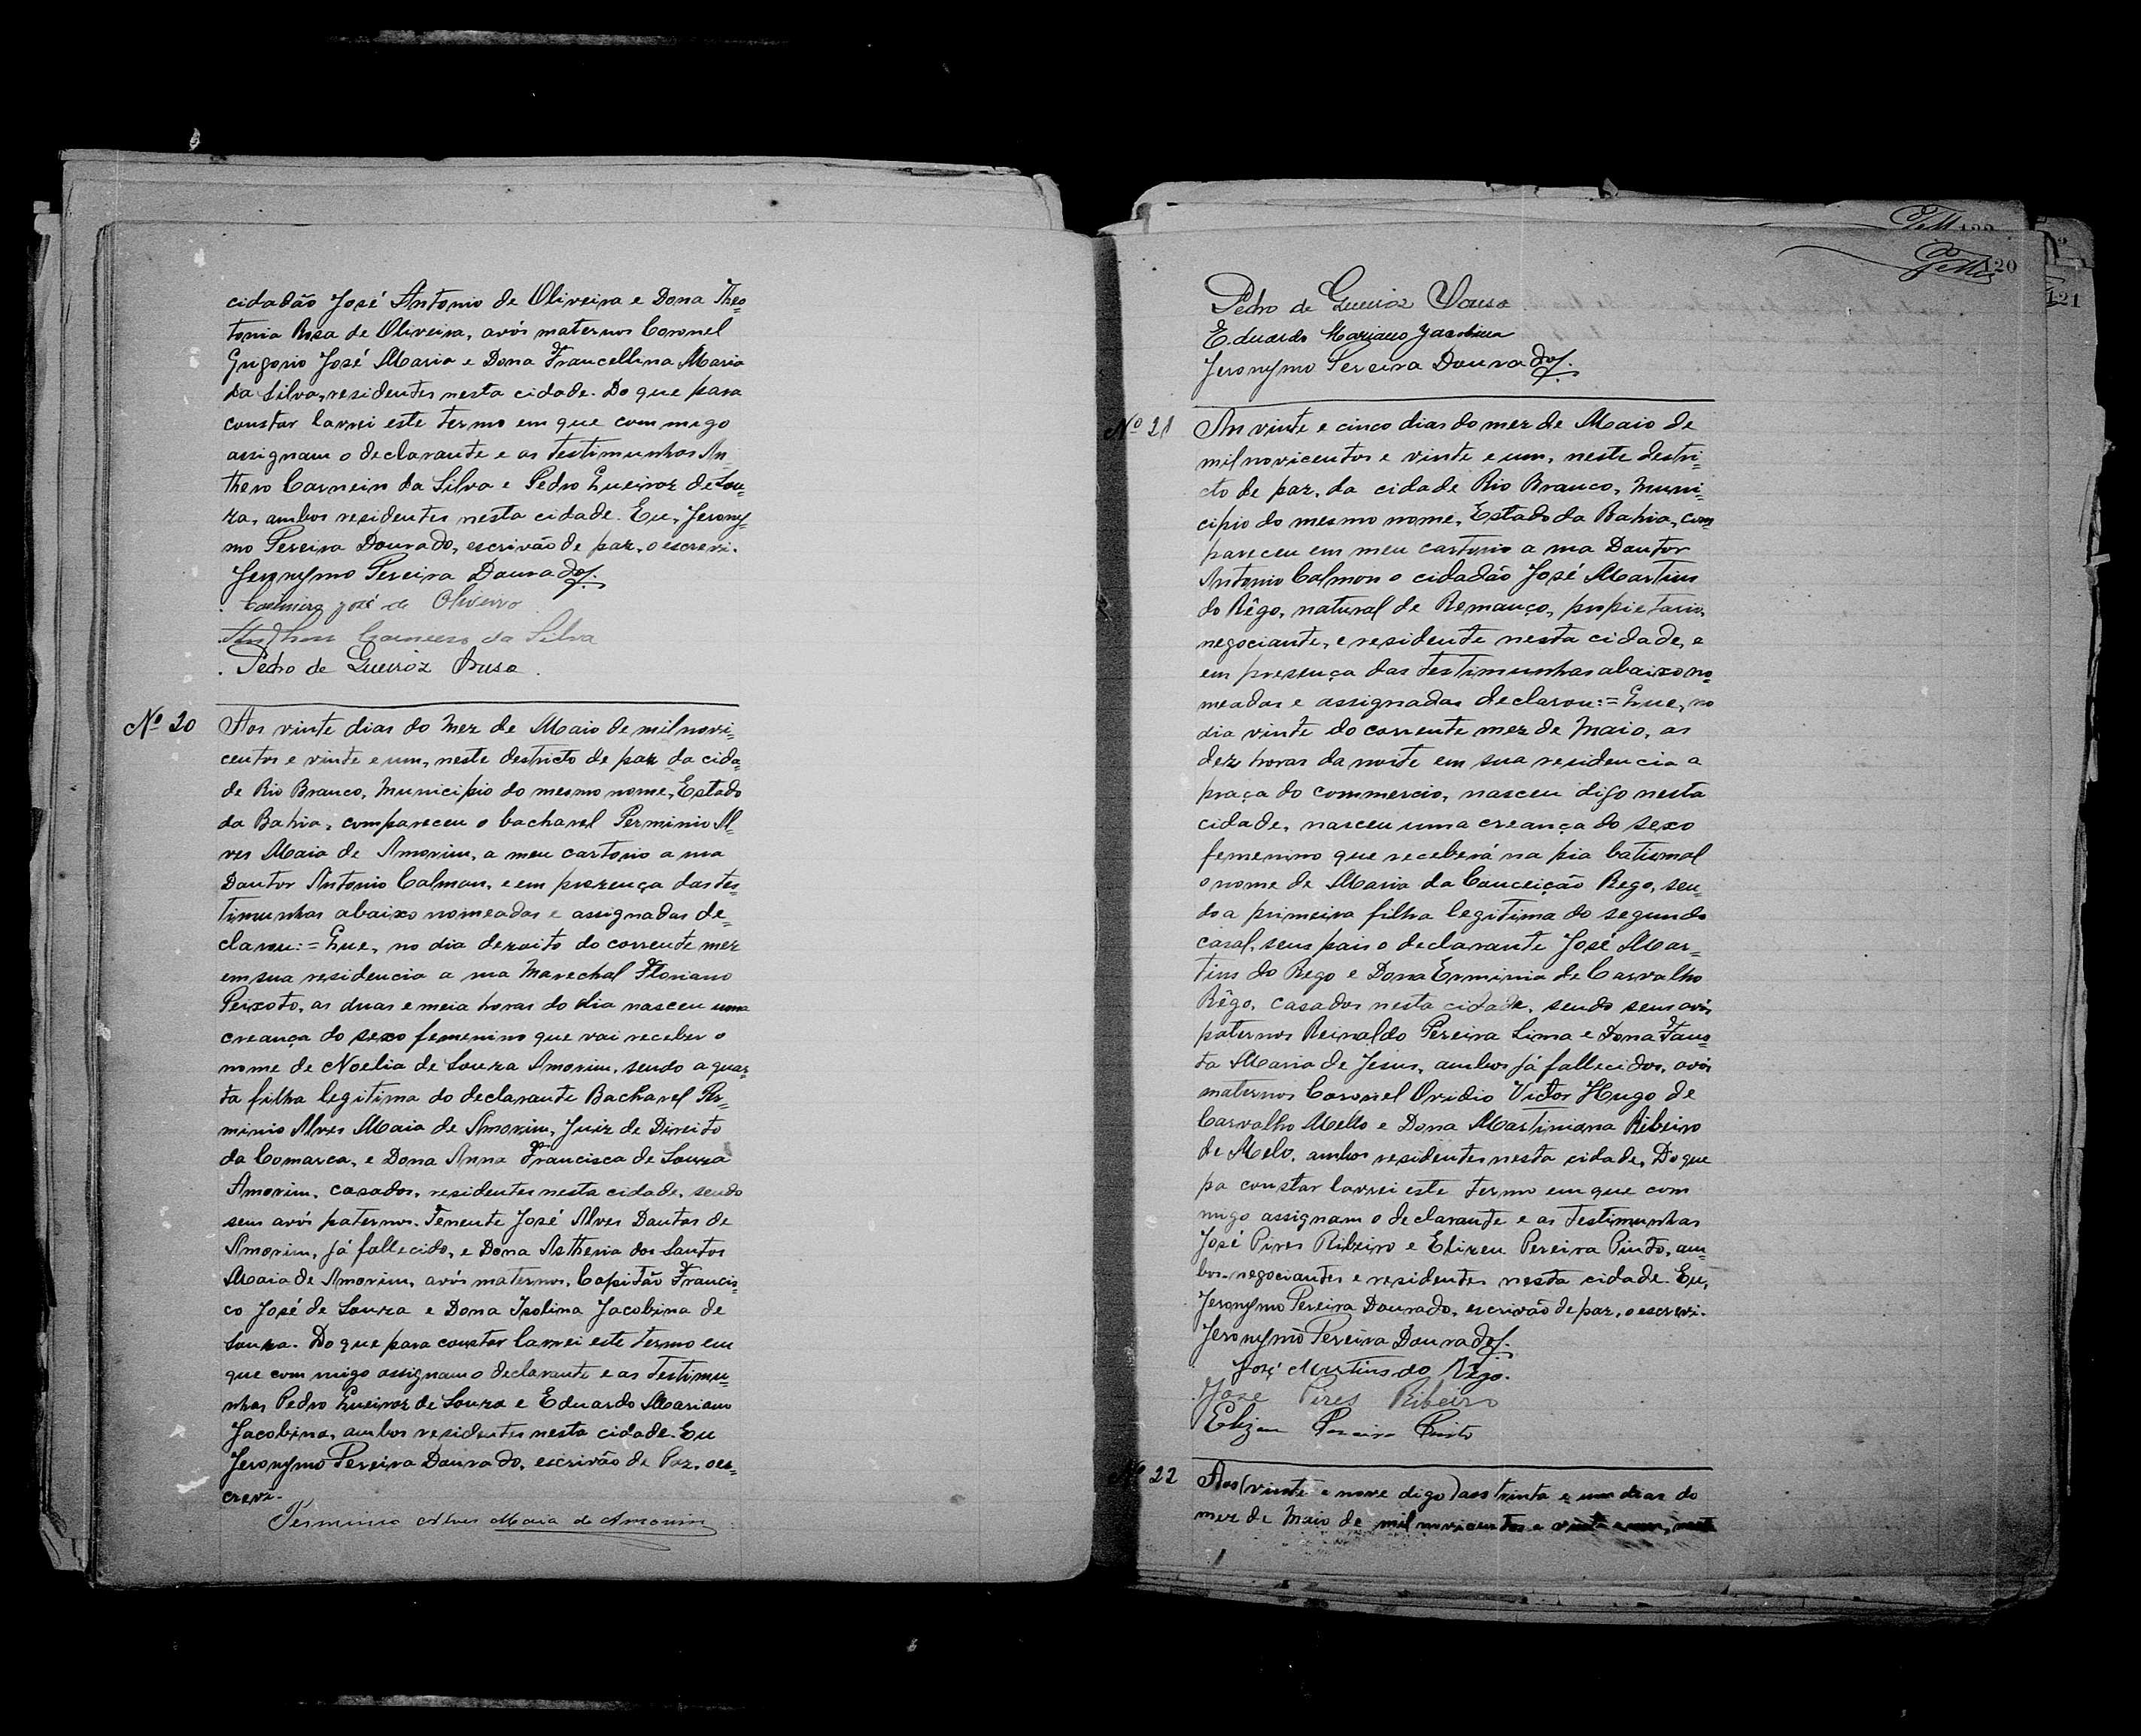 cidadão José Antonio de Oliveira e Dona Theo=
tonia Rosa de Oliveira, avós maternos Coronel
Grigorio José Maria e Dona Francellina Maria
da Silva, residentes nesta cidade. Do que para
constar lavrei este termo em que commigo
assignam o declarante e as testimunhas An
thero Carneiro da Silva e Pedro Queiroz de Sou=
za, ambos residentes nesta cidade. Eu, Jerony=
mo Pereira Dourado, escrivão de paz, o escrevi.
Jeronymo Pereira Dourado
Casimiro José de Oliveira
Anthero Carneiro da Silva
Pedro de Queiroz Sousa
Nº 20 Aos vinte dias do mez de Maio de mil novi=
centos e vinte e um, neste destricto de paz da cida=
de Rio Branco, Municipio do mesmo nome, Estado
da Bahia, compareceu o bacharel Perminio Al=
ves Maia de Amorim, a meu cartorio a rua
Doutor Antonio Calmon, e em prezença das tes=
timunhas abaixo nomeadas e assignadas de=
clarou:= Que, no dia dezoito do corrente mez
em sua residencia a rua Marechal Floriano
Peixoto, as duas e meia horas do dia nasceu uma
creança do sexo femenino que vai receber o
nome de Noelia de Souza Amorim, sendo a quar=
ta filha legitima do declarante Bacharel Per=
minio Alves Maia de Amorim, Juiz de Direito
da Comarca, e Dona Anna Francisca de Souza
Amorim, casados, residentes nesta cidade, sendo
seus avós paternos. Tenente José Alves Dantas de
Amorim, já fallecido, e Dona Astheria dos Santos
Maia de Amorim, avós maternos, Capitão Francis=
co José de Souza e Dona Isolina Jacobina de
Souza. Do que para constar lavrei este termo em
que com migo assignam o declarante e as testimu=
nhas Pedro Queiroz de Souza e Eduardo Mariano
Jacobina, ambos residentes nesta cidade. Eu
Jeronymo Pereira Dourado, escrivão de Paz, o es=
crevi.
Perminio Alves Maia de Amorim
120
121
Pedro de Queiroz Sousa
Eduardo Mariano Jacobina
Jeronymo Pereira Dourado
Nº 21 Aos vinte e cinco dias do mez de Maio de
mil novicentos e vinte e um, neste destri=
cto de paz, da cidade Rio Branco, Muni=
cipio do mesmo nome, Estado da Bahia, com
pareceu em meu cartorio a rua Doutor
Antonio Calmon o cidadão José Martins
do Rêgo, natural de Remanço, propietario,
negociante, e residente nesta cidade, e
em presença das testimunhas abaixo no=
meadas e assignadas declarou:= Que, no
dia vinte do corrente mez de Maio, as
dez horas da noite em sua residencia a
praça do commercio, nasceu digo nesta
cidade, nasceu uma creança do sexo
femenino que receberá na pia batismal
o nome de Maria da Conceição Rego, sen=
do a primeira filha legitima do segundo
casal, seus pais o declarante José Mar=
tins do Rego e Dona Erminia de Carvalho
Rêgo, casados nesta cidade, sendo seus avós
paternos Reinaldo Pereira Lima e Dona Faus=
ta Maria de Jesus, ambos já fallecidos, avós
maternos Coronel Ovidio Victor Hugo de
Carvalho Mello e Dona Martiniana Ribeiro
de Melo, ambos residentes nesta cidade, Do que
pa constar lavrei este termo em que com
migo assignam o declarante e as testimunhas
José Pires Ribeiro e Elizeu Pereira Pinto, am=
bos negociantes e residentes nesta cidade. Eu,
Jeronymo Pereira Dourado, escrivão de paz, o escrevi.
Jeronymo Pereira Dourado
José Martins do Rêgo.
Jose Pires Ribeiro
Elizeu Pereira Pinto
Nº 22 Aos (vinte e nove digo) aos trinta e um dias do
mez de Maio de mil novicentos e vinte e um, neste